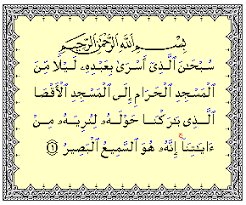 بِسْمِ ٱللَّهِ ٱلرَّحْمَٰنِ ٱلرَّحِيمِ
سُبْحَٰنَ ٱلَّذِىٓ أَسْرَىٰ بِعَبْدِهِۦ لَيْلًا مِّنَ
ٱلْمَسْجِدِ ٱلْحَرَامِ إِلَى ٱلْمَسْجِدِ ٱلْأَقْصَا
ٱلَّذِى بَٰرَكْنَا حَوْلَهُۥ لِنُرِيَهُۥ مِنْ
ءَايَٰتِنَآ إِنَّهُۥ هُوَ ٱلسَّمِيعُ ٱلْبَصِيرُ ١